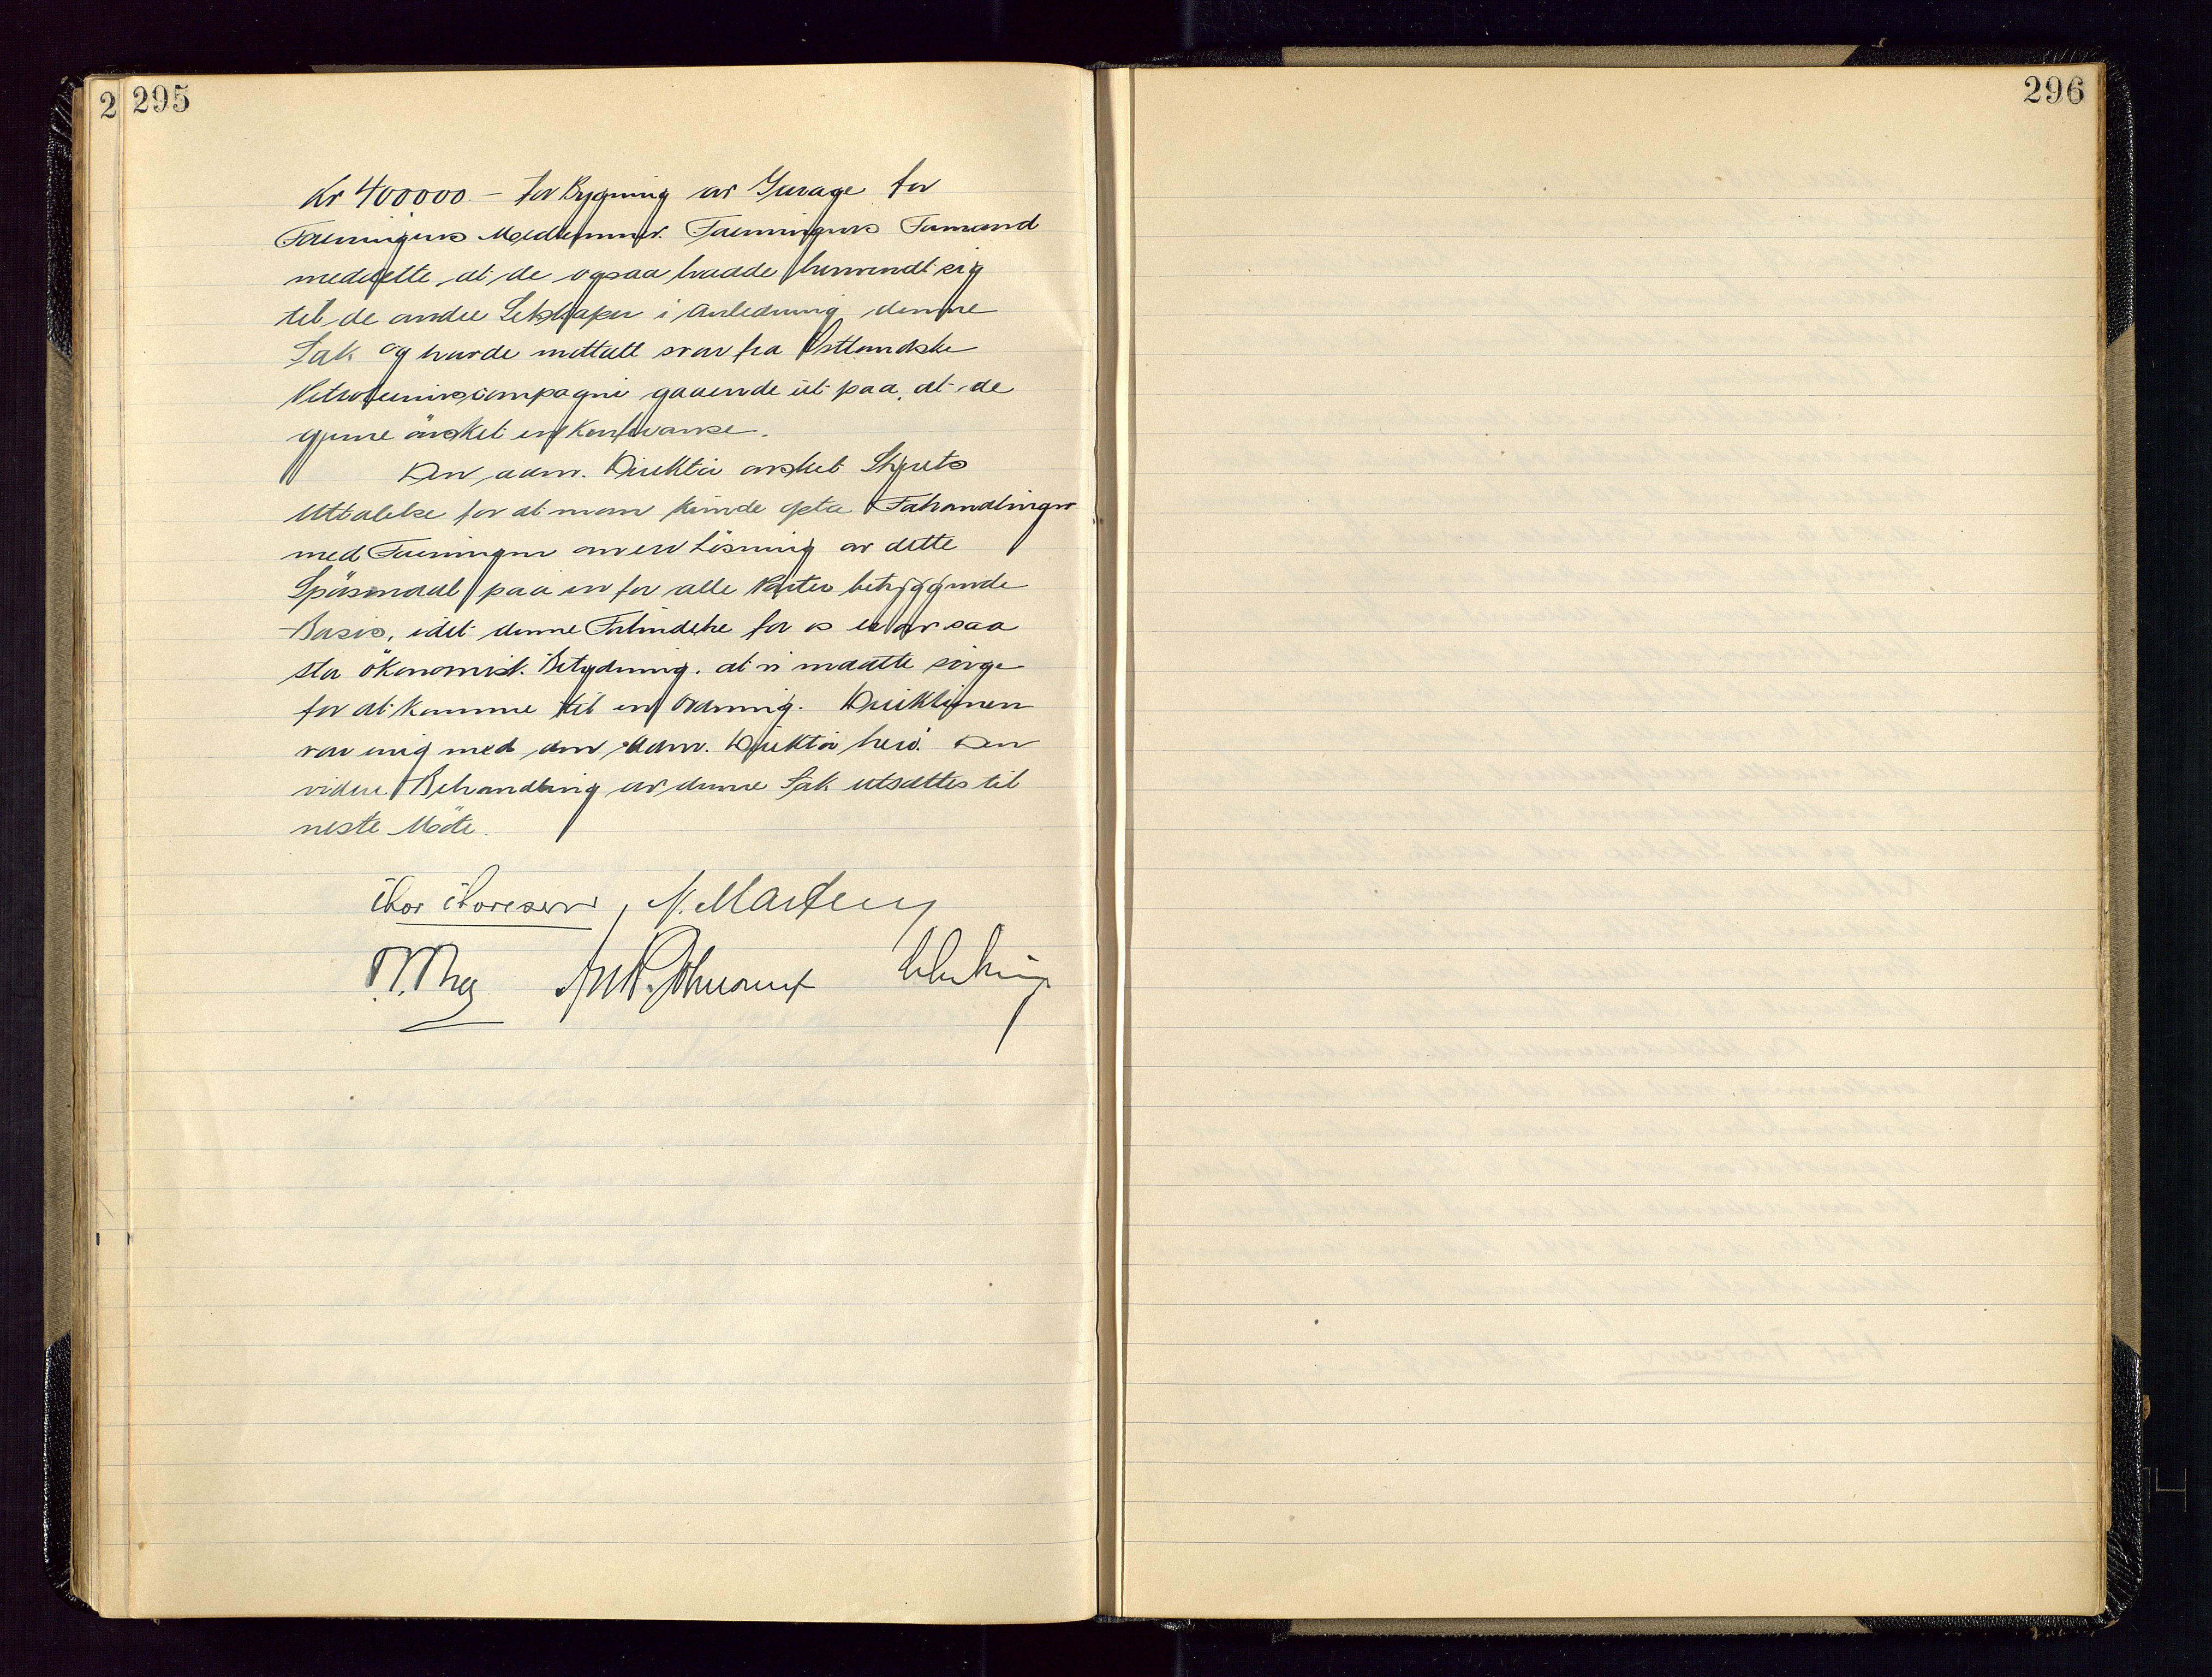 2 295
296
Kr 400000.- for Bygning av Garage for
Foreningens Medlemmer. Foreningens Formand
meddelte, at de ogsaa hadde henvendt sig
til de andre Selskaper i Anledning denne
Sak og havde mottatt svar fra Østlandske
Petroleumscompagni gaaende ut paa, at de
gjerne ønsket en Konferanse.
Den adm. Direktør ønsket Styrets
Uttalelse for at man kunde opta Forhandlinger
med Foreningen om en Løsning av dette
Spørsmaal paa en for alle Parter betryggende
Basis, idet denne Forbindelse for os er av saa
stor økonomisk Betydning, at vi maatte sørge
for at komme til en Ordning. Direktionen
var enig med den adm. Direktør heri. Den
videre Behandling av denne Sak utsættes til
neste Møte.
Thor Thoresen, N. Martens